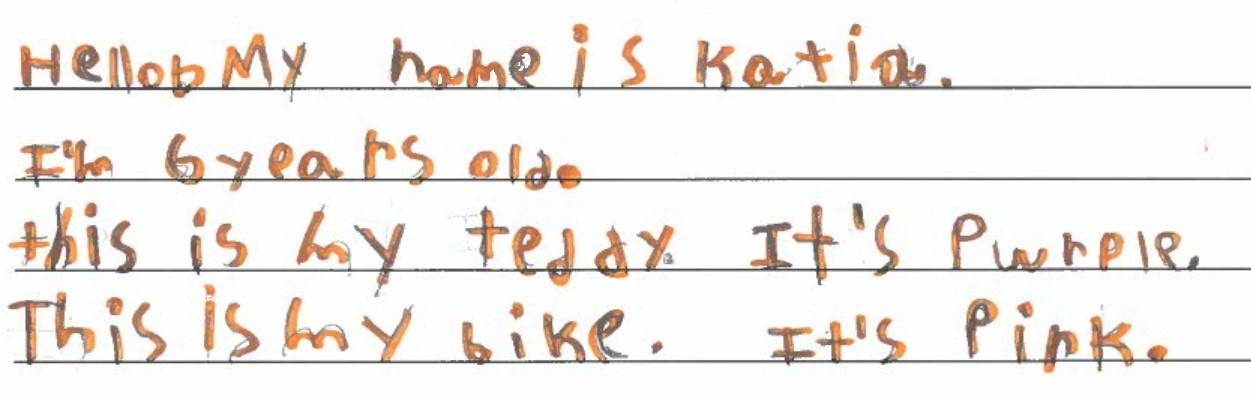 Hello, My name is Katia.
I'm 6 years old.
this is my teddy. It's Purple.
This is my bike. It's Pink.